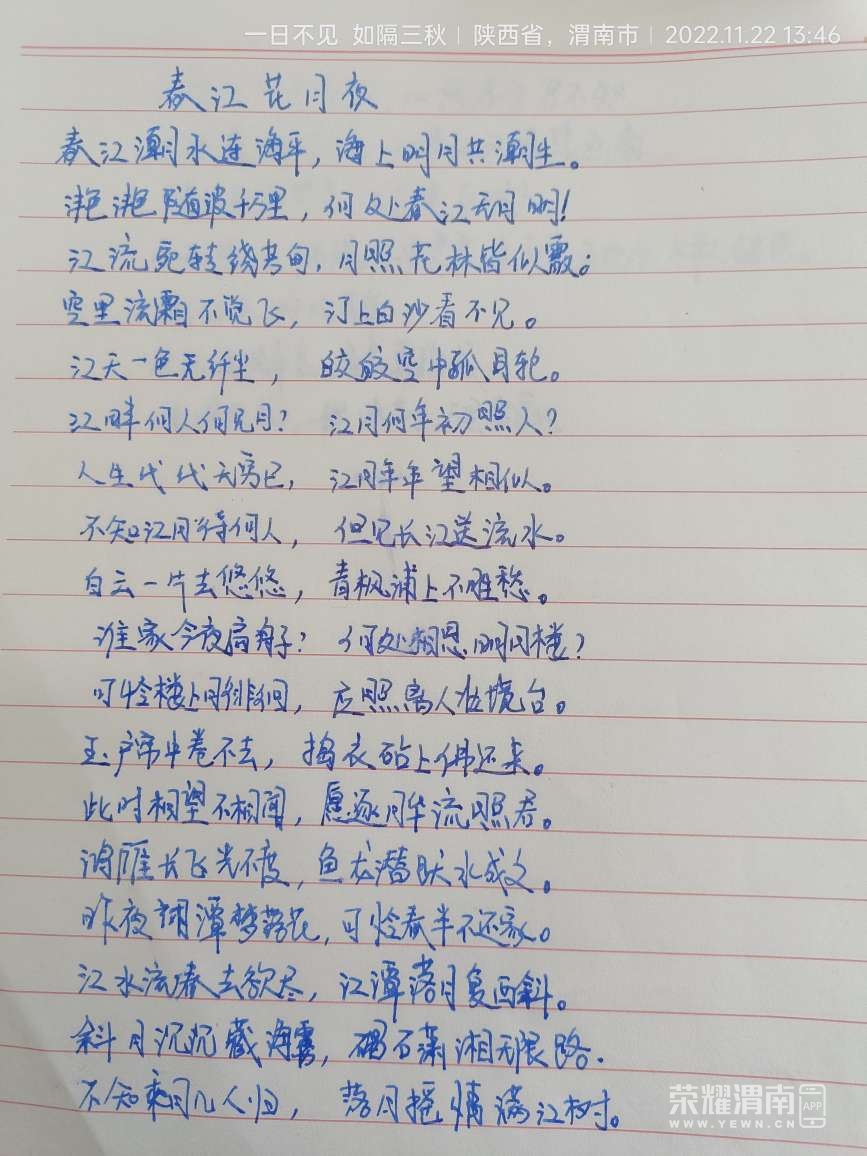 一日不见 如隔三秋 | 陕西省，渭南市 | 2022.11.22 13:46
春江花月夜
春江潮水连海平，海上明月共潮生。
滟滟随波千万里，何处春江无月明！
江流宛转绕芳甸，月照花林皆似霰；
空里流霜不觉飞，汀上白沙看不见。
江天一色无纤尘，皎皎空中孤月轮。
江畔何人何见月？江月何年初照人？
人生代代无穷已，江月年年望相似。
不知江月待何人，但见长江送流水。
白云一片去悠悠，青枫浦上不胜愁。
谁家今夜扁舟子？何处相思明月楼？
可怜楼上月徘徊，应照离人妆镜台。
玉户帘中卷不去，捣衣砧上拂还来。
此时相望不相闻，愿逐月华流照君。
鸿雁长飞光不度，鱼龙潜跃水成文。
昨夜潭梦落花，可怜春半不还家。
江水流春去欲尽，江潭落月复西斜。
斜月沉沉藏海雾，碣石潇湘无限路.
不知乘月几人归，落月摇情满江树。
荣耀渭南 APP
WWW.YEWN.CN